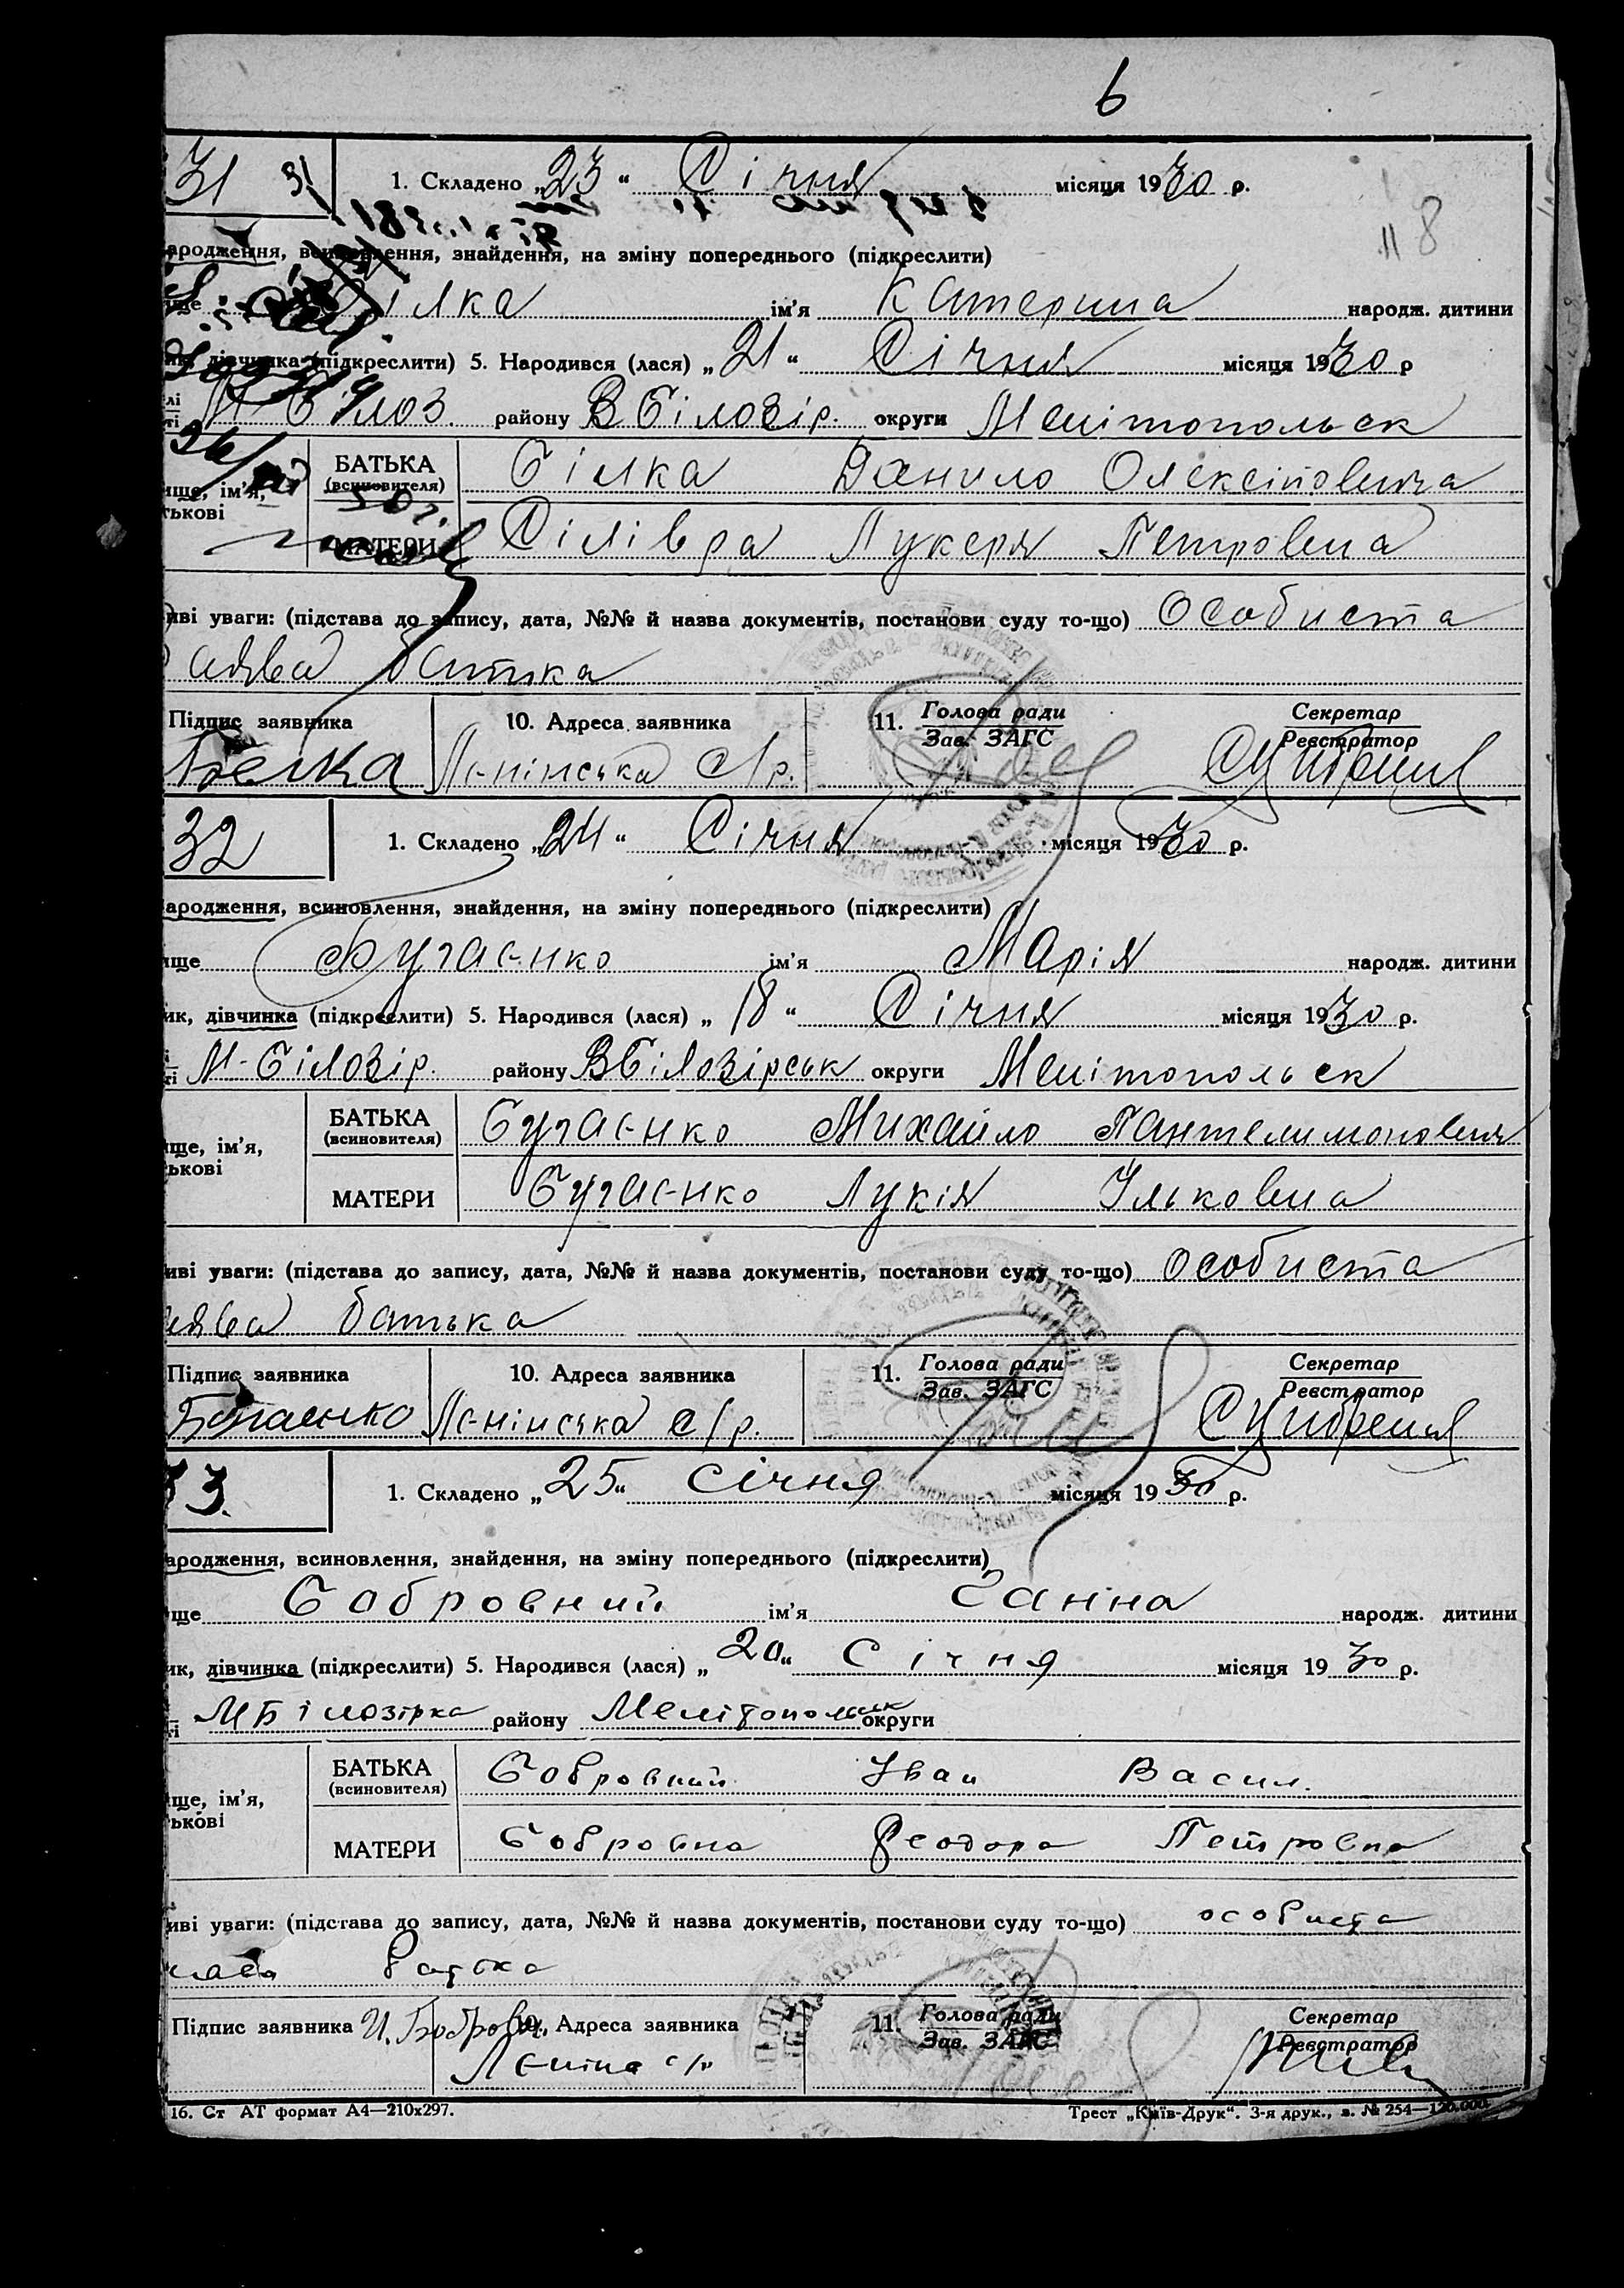 6
31 31 1. Складено „23“ Січня місяця 1930 р.
118
ародження, всиновлення, знайдення, на зміну попереднього (підкреслити)
ще Білка ім'я Катерина народж. дитини
дівчинка (підкреслити) 5. Народився (лася) „21“ Січня місяця 1930 р
М-Білоз. району ВБілозір. округи Мелітопольск
БАТЬКА (всиновителя) Білка Данило Олексійович
ище, ім'я,
ькові
МАТЕРИ Лукеря Петровна
иві уваги: (підстава до запису, дата, №№ й назва документів, постанови суду то-що) Особиста
аява батька
Підпис заявника 10. Адреса заявника 11. Голова ради Секретар
Зав. ЗАГС Реєстратор
Белка Ленінська с/р.
32 1. Складено „24“ Січня місяця 1930 р.
ародження, всиновлення, знайдення, на зміну попереднього (підкреслити)
ище Бугаєнко ім'я Марія народж. дитини
ик, дівчинка (підкреслити) 5. Народився (лася) „18“ Січня місяця 1930 р.
ті М-Білозір. району ВБілозірськ округи Мелітопольск
БАТЬКА (всиновителя) Бугаєнко Михайло Пантелимонович
ище, ім'я,
ькові
МАТЕРИ Бугаєнко Лукія Ільковна
иві уваги: (підстава до запису, дата, №№ й назва документів, постанови суду то-що) особиста
аява батька
Підпис заявника 10. Адреса заявника 11. Голова ради Секретар
Зав. ЗАГС Реєстратор
Бугаенко Ленінська с/р.
33. 1. Складено „25“ січня місяця 1930 р.
ародження, всиновлення, знайдення, на зміну попереднього (підкреслити)
ще Бобровний ім'я Ганна народж. дитини
ик, дівчинка (підкреслити) 5. Народився (лася) „20“ Січня місяця 1930 р.
ті МБілозірка району Мелітопольск округи
БАТЬКА (всиновителя) Бобровний Іван Васил.
ище, ім'я,
ькові
МАТЕРИ Бобровна Феодора Петровна
иві уваги: (підстава до запису, дата, №№ й назва документів, постанови суду то-що) особиста
батька
Підпис заявника И. Бобровн. 10. Адреса заявника 11. Голова ради Секретар
Зав. ЗАГС Реєстратор
Леніна с/р
16. Ст АТ формат А4—210х297. Трест „Київ-Друк“. 3-я друк., з. № 254—120.000